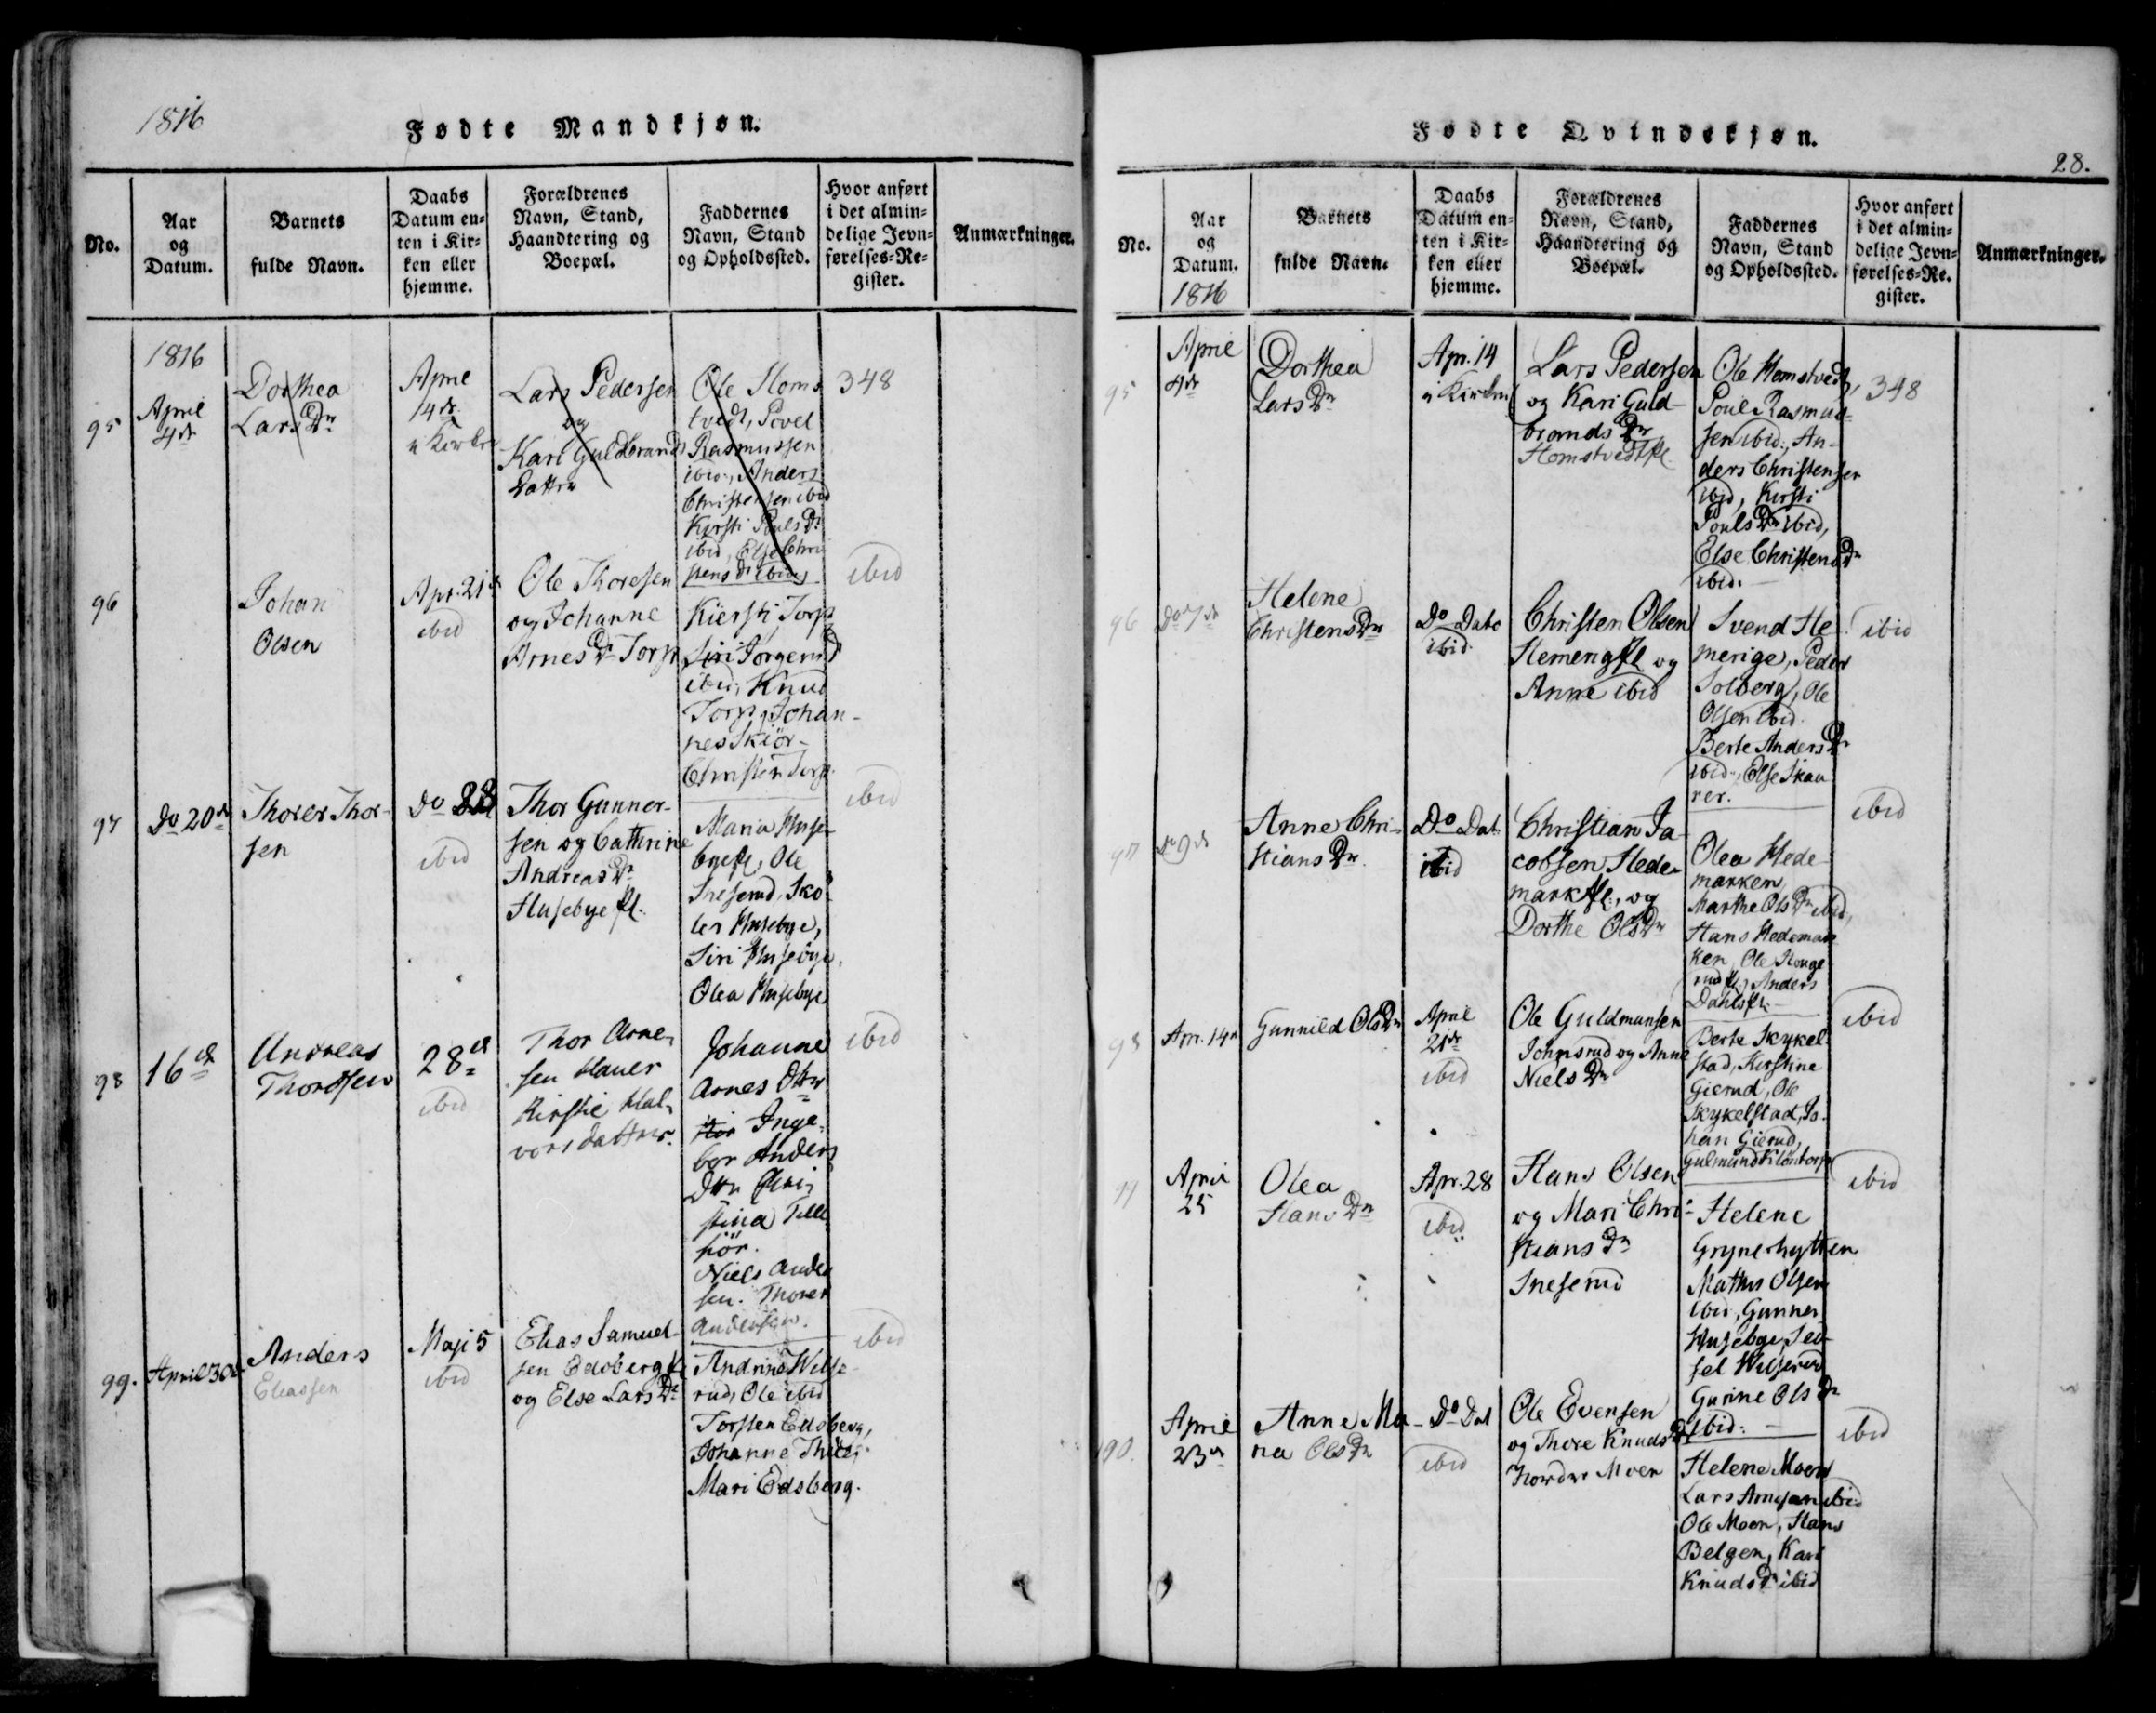 1816
Fødte Mandkjøn.
No.
Aar
og
Datum.
Barnets
fulde Navn.
Daabs
Datum en-
ten i Kir-
ken eller
hjemme.
Forældrenes
Navn, Stand,
Haandtering og
Boepæl.
Faddernes
Navn, Stand
og Opholdssted.
Hvor anført
i det almin-
delige Jevn-
førelses-Re-
gister.
Anmærkninger.
1816
95
April
4de
Dorthea
Lars Dr
April
14de
i Kirken
Lars Pedersen
og
Kari Guldbrands
Datter
Ole Homs
tvedt, Povel
Rasmussen
ibid., Anders
Christensen ibid
Kirsti Pouls Dr
ibid, Else Chri
stens Dr ibid
348
96
Johan
Olsen
Apr. 21de
ibid
Ole Thoresen
og Johanne
Arnes Dr Torp
Kiersti Torp
Siri Jorgens Dr
ibid, Knud
Torp, Johan-
nes Skiör-
Christen Torp
ibid
97
Do 20de
Thorer Thor-
sen
Do 28
ibid
Thor Gunner-
sen og Cathrine
Andreas Dr
Husebye
Maria Huse-
bye, Ole
Sneserud, Sko-
ler Husebye,
Siri Husebye,
Olea Husebye
ibid
98
16de
Andreas
Thordsen
28de
ibid
Thor Arne-
sen Hauer
Kirstie Hal-
vors datter.
Johanne
Arnes Dtr
Inge-
bor Anders
Dtr Chri-
stina
Niels Ander
sen. Thorer
Andersen.
ibid
99.
April 30de
Anders
Eliassen
Maji 5
ibid
Elias Samuel-
sen Edsberg
og Else Lars Dr
Andrine Welse-
rud, Ole ibid
Torsten Edsberg,
Johanne
Mari Edsberg.
ibid
Fødte Qvindekjøn.
28.
No.
Aar
og
Datum.
1816
Barnets
fulde Navn.
Daabs
Datum en-
ten i Kir-
ken eller
hjemme.
Forældrenes
Navn, Stand,
Haandtering og
Boepæl.
Faddernes
Navn, Stand
og Opholdssted.
Hvor anført
i det almin-
delige Jevn-
førelses-Re-
gister.
Anmærkninger.
95
April
4de
Dorthea
Lars Dr
Apr. 14
i Kirken
Lars Pedersen
og Kari Guld-
brands Dr
Homstvedt
Ole Homstvedt,
Poul Rasmus-
sen ibid., An-
ders Christensen
ibid, Kirsti
Pouls Dr ibid,
Else Christens Dr
ibid.
348
96
Do 7de
Helene
Christens Dr
Do Dato
ibid.
Christen Olsen
Hemeng og
Anne ibid
Svend He-
merige, Peder
Solberg, Ole
Olsen ibid.
Berte Anders Dr
ibid., Else Skau
rer.
ibid
97
Do 9de
Anne Chri-
stians Dr.
Do Dat
ibid
Christian Ja-
cobsen Hede-
mark, og
Dorthe Ols Dr
Olea Hede-
marken
Marthe Ols Dr ibid,
Hans Hedemar
ken, Ole Houge
rud, Anders
Dahls
ibid
98
Apr. 14de
Gunnild Ols Dr
April
21de
ibid
Ole Guldmunsen
Johnsrud og Anne
Niels Dr
Berte Skykel-
stad, Kirstine
Gierud, Ole
Skykelstad, Jo-
han Gierud,
Gulmund
ibid
April
25
Olea
Hans Dr
Apr. 28
ibid.
Hans Olsen
og Mari Chri-
stians Dr
Sneserud
Helene
Grynerhytten
Mathis Olsen
ibid, Gunner
Husebye,
sel Welserud
Gunine Ols Dr
ibid.
ibid
April
23de
Anne Ma-
ria Ols Dr
Do Dat
ibid
Ole Evensen
og Thore Knuds Dr
Nordre Moen
Helene Moen
Lars Arnesen ibid
Ole Moen, Hans
Belgen, Kari
Knuds Dr ibid
ibid